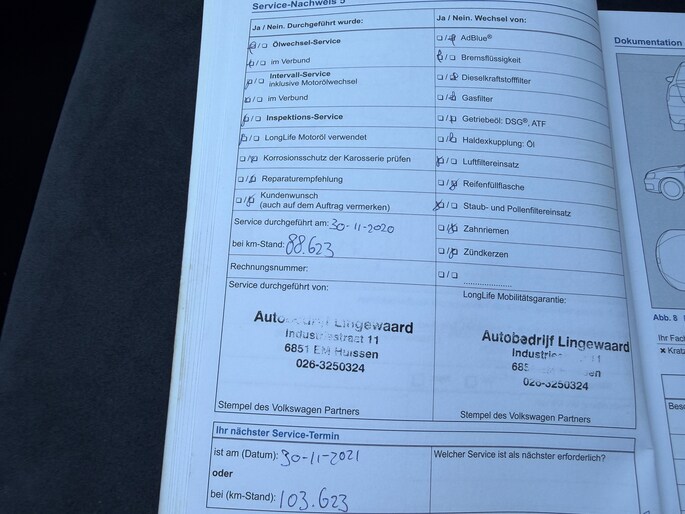 Service-Nachweis 5
Ja / Nein. Durchgeführt wurde:
Ölwechsel-Service
im Verbund
Intervall-Service
inklusive Motorölwechsel
im Verbund
Inspektions-Service
LongLife Motoröl verwendet
Korrosionsschutz der Karosserie prüfen
Reparaturempfehlung
Kundenwunsch
(auch auf dem Auftrag vermerken)
Service durchgeführt am: 30-11-2020
bei km-Stand: 88.623
Rechnungsnummer:
Service durchgeführt von:
Lingewaard
Industriestraat 11
6851 EM Huissen
026-3250324
Stempel des Volkswagen Partners
Ja / Nein. Wechsel von:
AdBlue®
Bremsflüssigkeit
Dieselkraftstofffilter
Gasfilter
Getriebeöl: DSG®, ATF
Haldexkupplung: Öl
Luftfiltereinsatz
Reifenfüllflasche
Staub- und Pollenfiltereinsatz
Zahnriemen
Zündkerzen
LongLife Mobilitätsgarantie:
Autobedrijf Lingewaard
026-3250324
Stempel des Volkswagen Partners
Ihr nächster Service-Termin
ist am (Datum): 30-11-2021
oder
bei (km-Stand): 103.623
Welcher Service ist als nächster erforderlich?
Dokumentation
Abb. 8
Ihr Fac
× Kratz
Besc